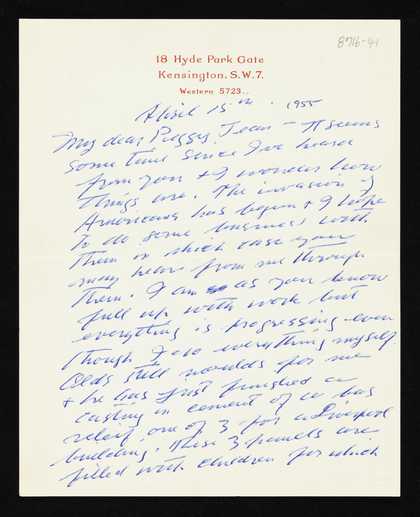 8716-41
18 Hyde Park Gate
Kensington. S.W.7.
Western 5723..
April 15th. 1955
My dear Peggy Jean – It seems
some time since I've heard
from you & I wonder how
things are. The invasion of
Americans has begun & I hope
to do some business with
them in which case you
may hear from me through
them. I am as you know
full up with work but
everything is progressing even
though I do everything myself
Olds still moulds for me
& he has just finished a
casting in cement of a bas
relief, one of 3 for a Liverpool
building. These 3 panels are
filled with children for which